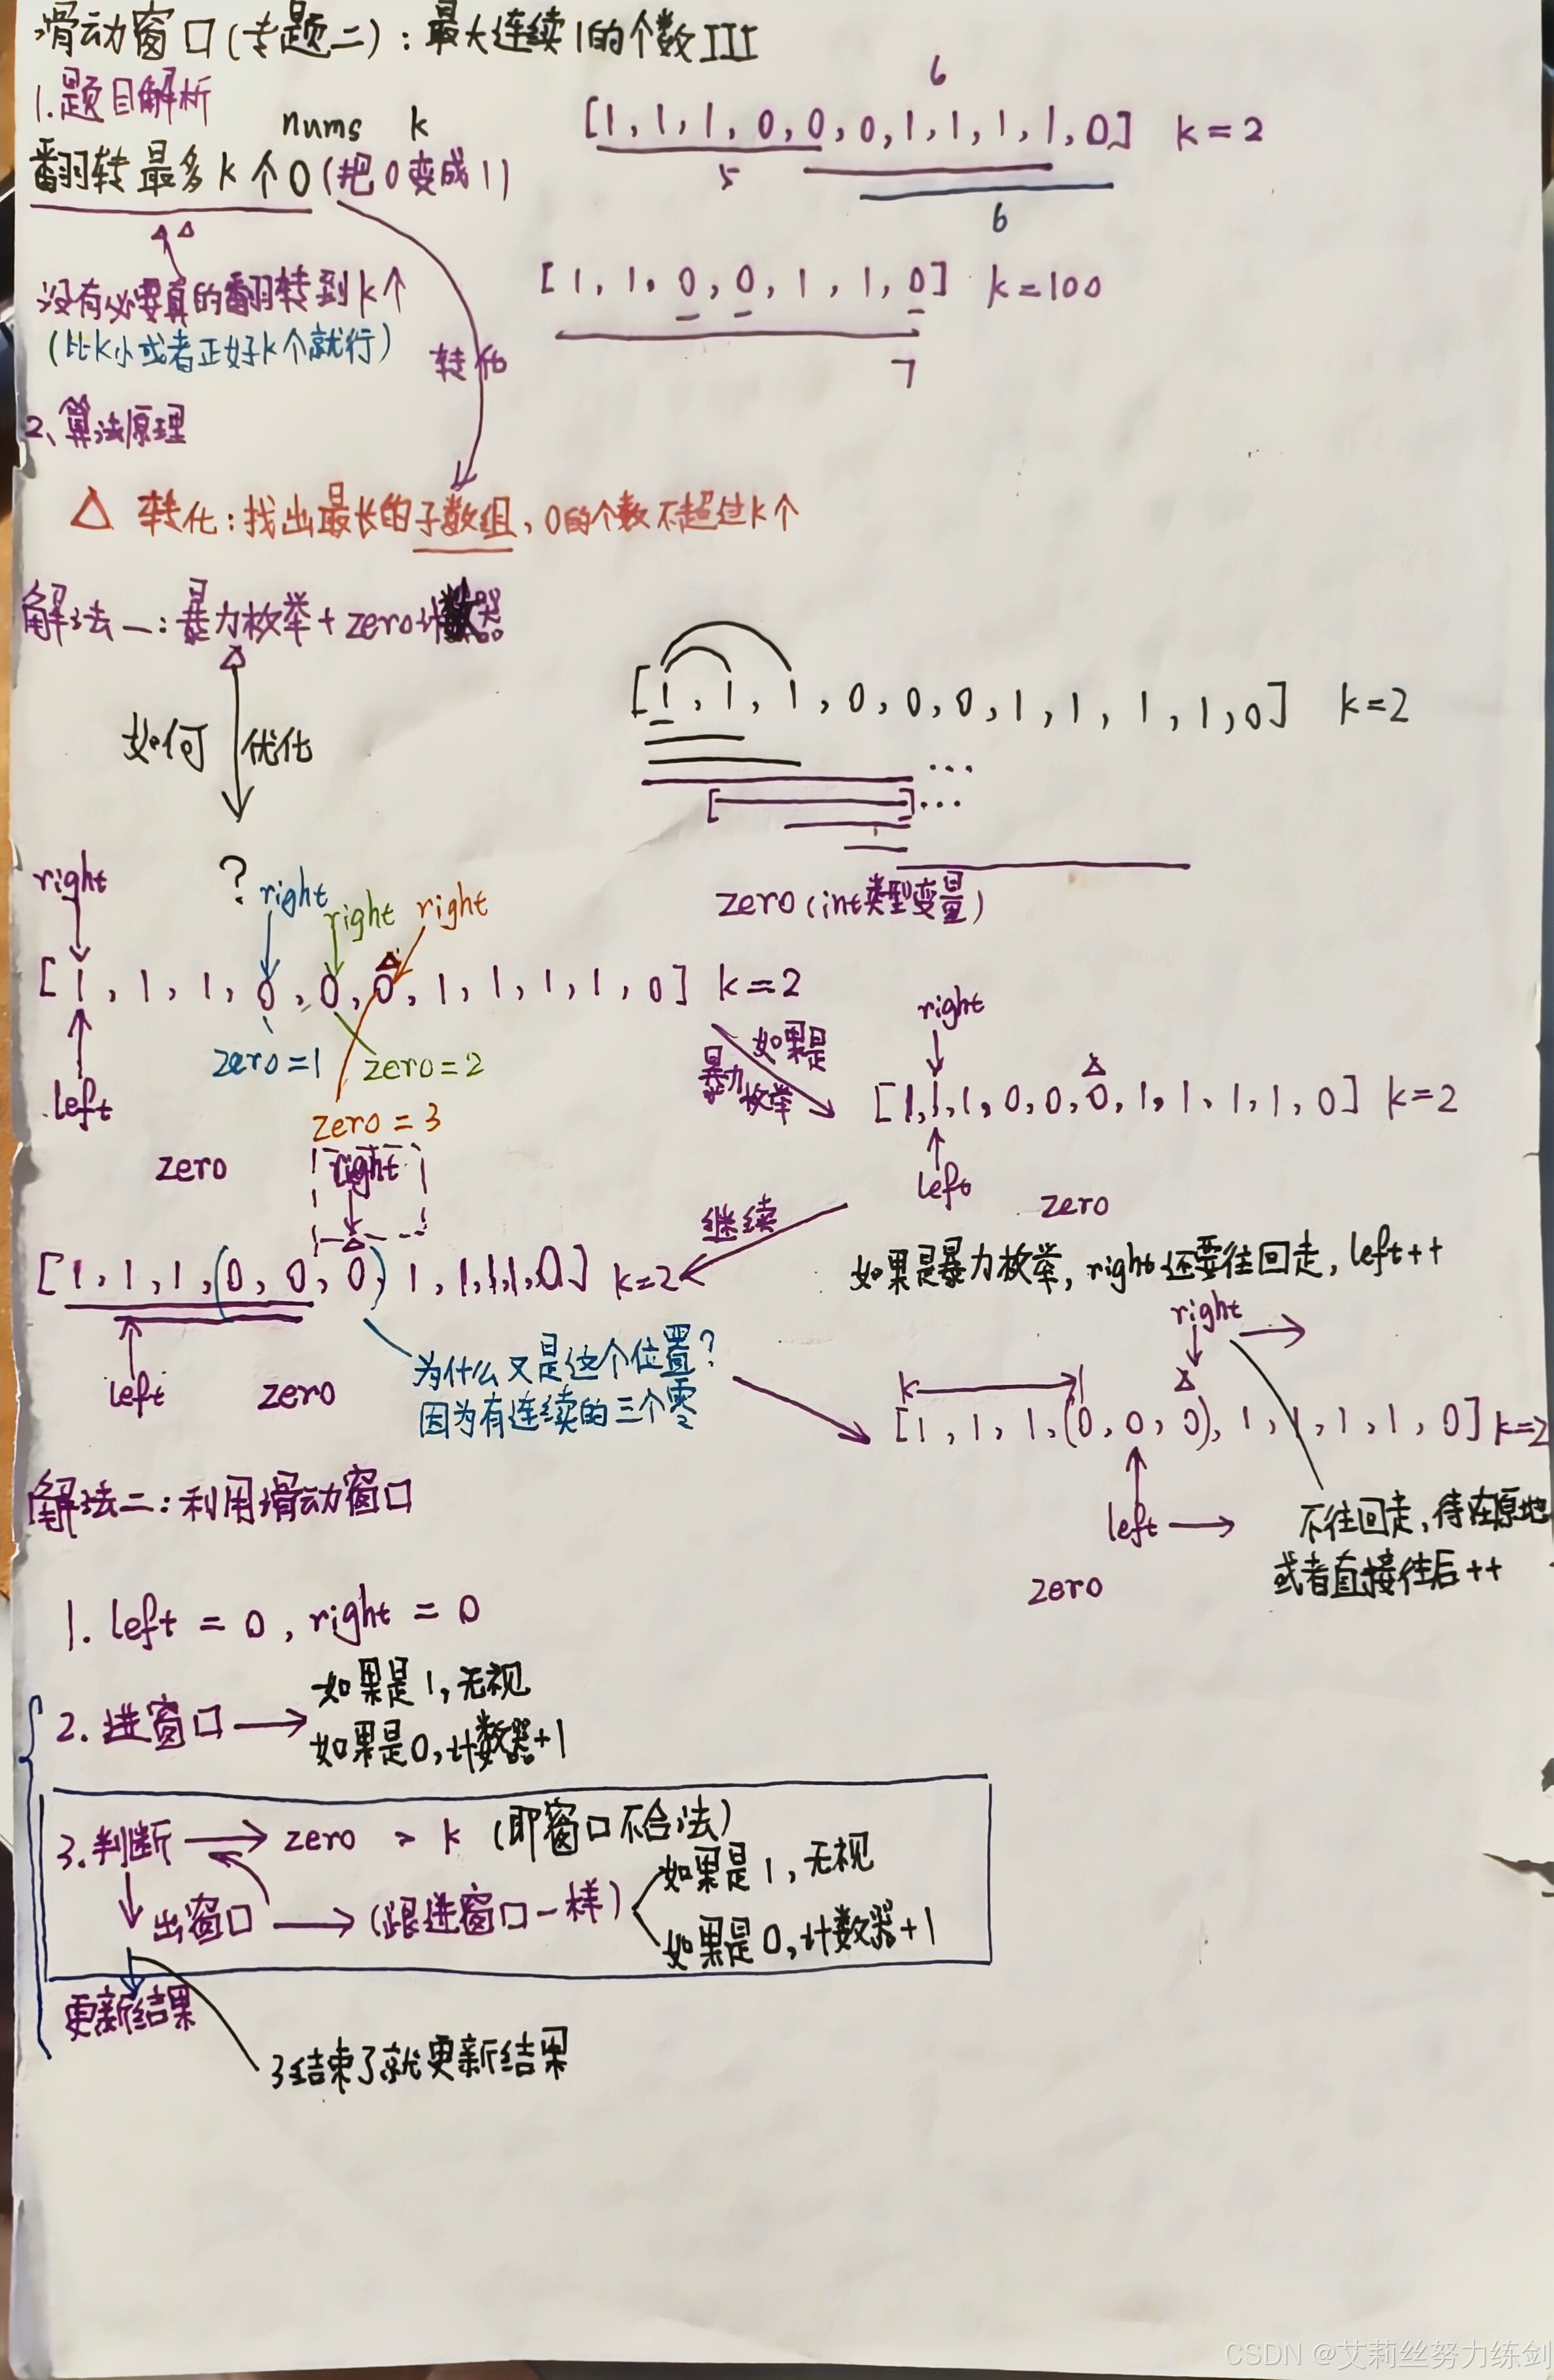 滑动窗口(专题二):最大连续1的个数III
1.题目解析
nums k
翻转最多k个0(把0变成1)
6
[1,1,1,0,0,0,1,1,1,1,0] k=2
5
6
没有必要真的翻转到k个
(比k小或者正好k个就行)
转化
[1,1,0,0,1,1,0] k=100
7
2、算法原理
△ 转化:找出最长的子数组,0的个数不超过k个
解法一:暴力枚举+zero计数器
如何 优化
?
[1,1,1,0,0,0,1,1,1,1,0] k=2
[ ]...
...
zero(int类型变量)
right
right
right
right
[1,1,1,0,0,0,1,1,1,1,0] k=2
zero=1
zero=2
zero=3
left
zero
如果是
暴力枚举
right
[1,1,1,0,0,0,1,1,1,1,0] k=2
left
zero
如果是暴力枚举,right还要往回走,left++
继续
right
[1,1,1,(0,0,0),1,1,1,1,0] k=2
left
zero
为什么又是这个位置?
因为有连续的三个零
right
[1,1,1,(0,0,0),1,1,1,1,0] k=2
left
zero
不往回走,待在原地
或者直接往后++
解法二:利用滑动窗口
1. left = 0, right = 0
2. 进窗口
如果是1,无视
如果是0,计数器+1
3.判断 zero > k (即窗口不合法)
出窗口 (跟进窗口一样)
如果是1,无视
如果是0,计数器+1
更新结果
3结束了就更新结果
CSDN @艾莉丝努力练剑